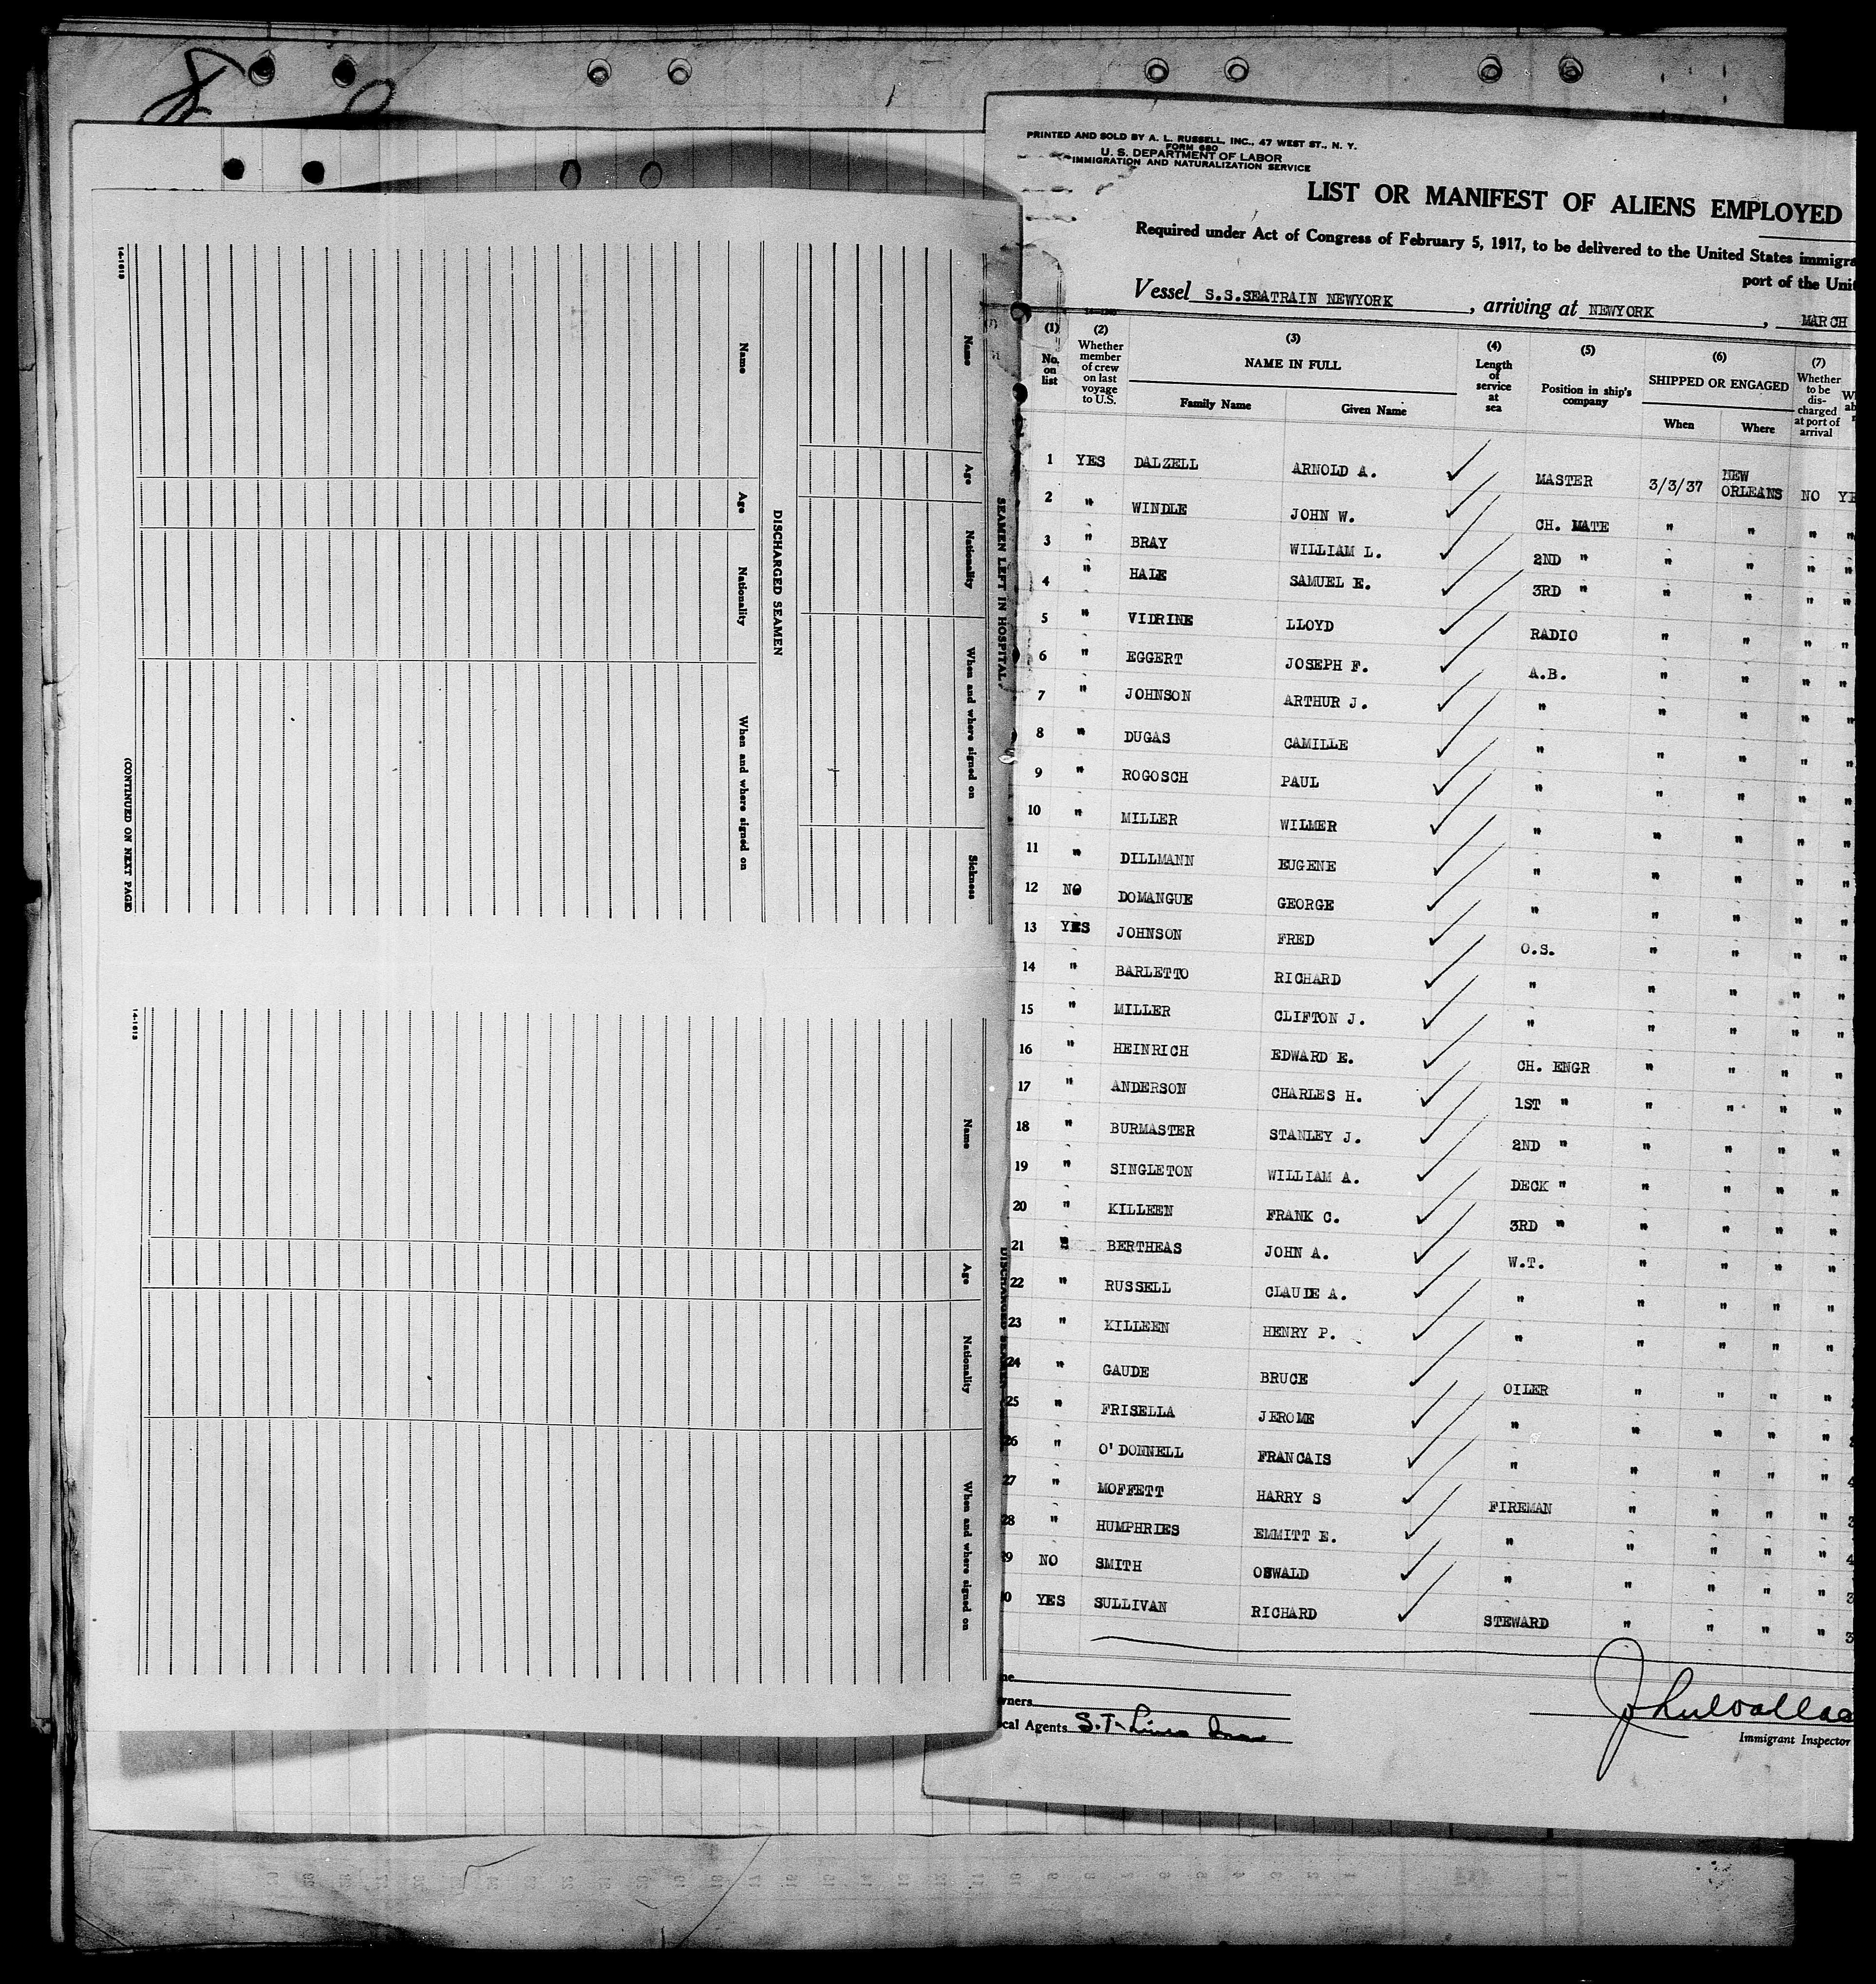 PRINTED AND SOLD BY A. L. RUSSELL, INC., 47 WEST ST., N. Y.
FORM 680
U. S. DEPARTMENT OF LABOR
IMMIGRATION AND NATURALIZATION SERVICE
LIST OR MANIFEST OF ALIENS EMPLOYED
Required under Act of Congress of February 5, 1917, to be delivered to the United States immigra
port of the Unit
Vessel S.S.SEATRAIN NEWYORK, arriving at NEWYORK, MARCH
(1) No. on list (2) Whether member of crew on last voyage to U.S. (3) NAME IN FULL Family Name Given Name (4) Length of service at sea (5) Position in ship's company (6) SHIPPED OR ENGAGED When Where (7) Whether to be discharged at port of arrival
1 YES DALZELL ARNOLD A. MASTER 3/3/37 NEW ORLEANS NO YE
2 " WINDLE JOHN W. CH. MATE " " " "
3 " BRAY WILLIAM L. 2ND " " " " "
4 " HALE SAMUEL E. 3RD " " " " "
5 " VIDRINE LLOYD RADIO " " " "
6 " EGGERT JOSEPH F. A.B. " " " "
7 " JOHNSON ARTHUR J. " " " " "
8 " DUGAS CAMILLE " " " " "
9 " ROGOSCH PAUL " " " " "
10 " MILLER WILMER " " " " "
11 " DILLMANN EUGENE " " " " "
12 NO DOMANGUE GEORGE " " " " "
13 YES JOHNSON FRED O.S. " " " "
14 " BARLETTO RICHARD " " " " "
15 " MILLER CLIFTON J. " " " " "
16 " HEINRICH EDWARD E. CH. ENGR " " " "
17 " ANDERSON CHARLES H. 1ST " " " " "
18 " BURMASTER STANLEY J. 2ND " " " " "
19 " SINGLETON WILLIAM A. DECK " " " " "
20 " KILLEEN FRANK C. 3RD " " " " "
21 " BERTHEAS JOHN A. W.T. " " " "
22 " RUSSELL CLAUDE A. " " " " "
23 " KILLEEN HENRY P. " " " "
24 " GAUDE BRUCE OILER " " "
25 " FRISELLA JEROME " " " " "
26 " O'DONNELL FRANCAIS " " " " "
27 " MOFFETT HARRY S FIREMAN " " " "
28 " HUMPHRIES EMMITT E. " " " " "
9 NO SMITH OSWALD " " " " "
0 YES SULLIVAN RICHARD STEWARD " " " "
ners
cal Agents S.T. Lines Inc
Immigrant Inspector
SEAMEN LEFT IN HOSPITAL
Name Age Nationality When and where signed on Sickness
DISCHARGED SEAMEN
Name Age Nationality When and where signed on
14-1613
(CONTINUED ON NEXT PAGE)
DISCHARGED SEAMEN
Name Age Nationality When and where signed on
14-1613